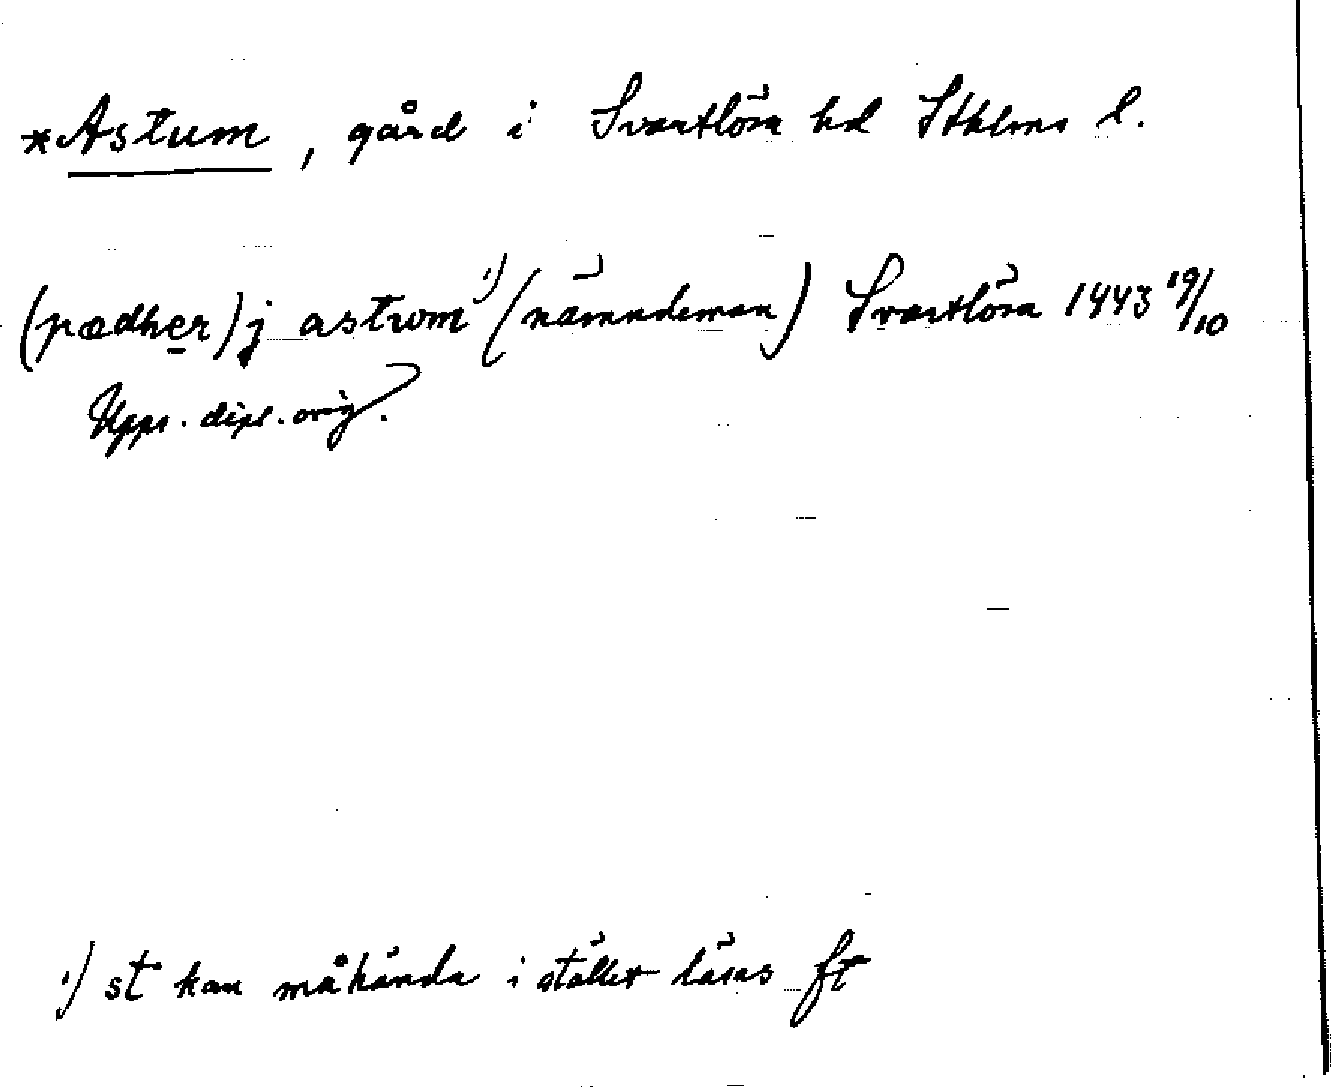 *Astum, gård i Svartlösa hd Sthlms l.
(pædher) j astwm ¹) (nämndeman) Svartlösa 1443 19/10
Upps. dipl. orig.
¹) st kan måhända i stället läsas ft